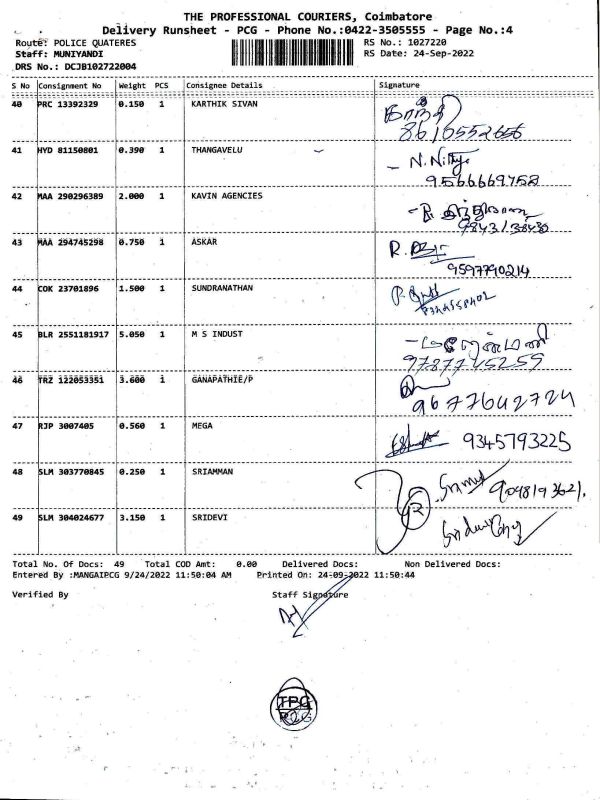 THE PROFESSIONAL COURIERS, Coimbatore
Delivery Runsheet - PCG - Phone No.:0422-3505555 - Page No.:4
Route: POLICE QUATERES RS No.: 1027220
Staff: MUNIYANDI RS Date: 24-Sep-2022
DRS No.: DCJB102722004
S No Consignment No Weight PCS Consignee Details Signature
40 PRC 13392329 0.150 1 KARTHIK SIVAN
41 HYD 81150801 0.390 1 THANGAVELU N. Nithya
9566669758
42 MAA 290296389 2.000 1 KAVIN AGENCIES
43 MAA 294745298 0.750 1 ASKAR
9597790214
44 COK 23701896 1.500 1 SUNDRANATHAN
45 BLR 2551181917 5.050 1 M S INDUST
9787745259
46 TRZ 122053351 3.600 1 GANAPATHIE/P
9677642724
47 RJP 3007405 0.560 1 MEGA 9345793225
48 SLM 303770845 0.250 1 SRIAMMAN
49 SLM 304024677 3.150 1 SRIDEVI
Total No. Of Docs: 49 Total COD Amt: 0.00 Delivered Docs: Non Delivered Docs:
Entered By :MANGAIPCG 9/24/2022 11:50:04 AM Printed On: 24-09-2022 11:50:44
Verified By Staff Signature
TPC
PCG